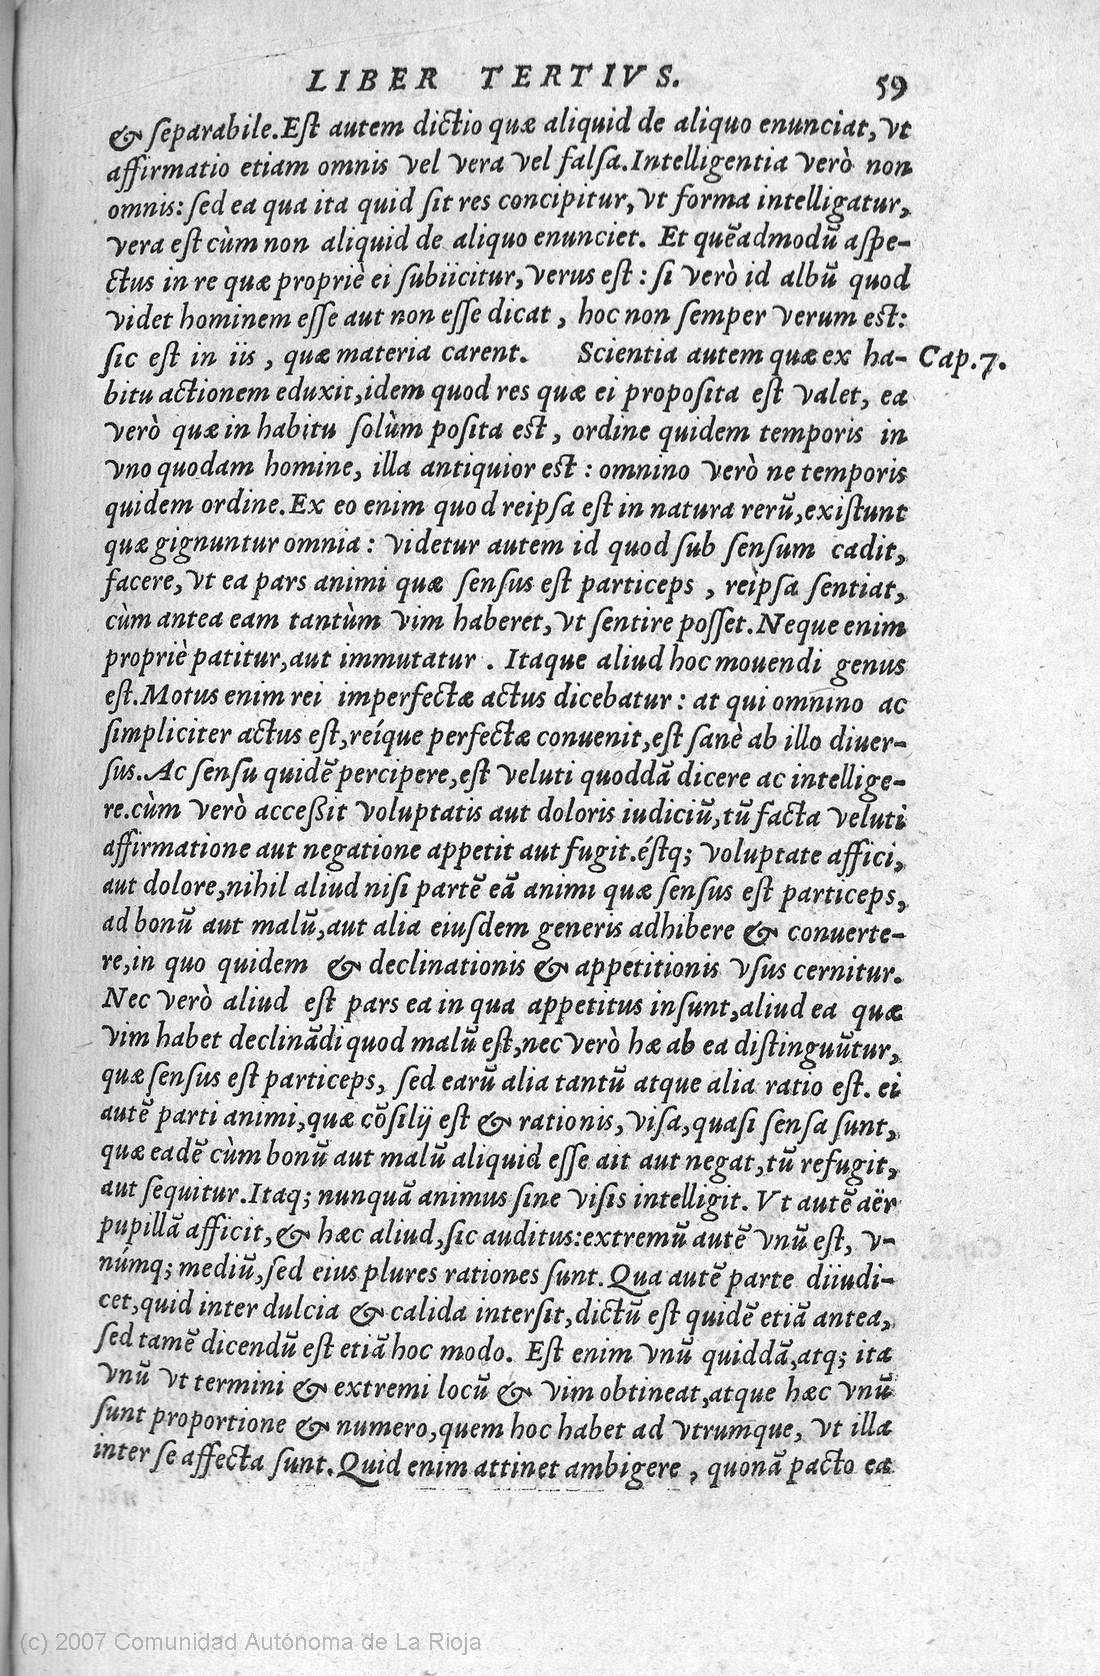 LIBER TERTIVS. 59
& ſeparabile.Eſt autem dictio quæ aliquid de aliquo enunciat, vt
affirmatio etiam omnis vel vera vel falſa.Intelligentia verò non
omnis: ſed ea qua ita quid ſit res concipitur, vt forma intelligatur,
vera eſt cùm non aliquid de aliquo enunciet. Et quẽadmodũ aſpe-
ctus in re quæ propriè ei ſubiicitur, verus eſt : ſi verò id albũ quod
videt hominem eſſe aut non eſſe dicat , hoc non ſemper verum eſt:
ſic eſt in iis , quæ materia carent. Scientia autem quæ ex ha- Cap.7.
bitu actionem eduxit,idem quod res quæ ei propoſita eſt valet, ea
verò quæ in habitu ſolùm poſita eſt , ordine quidem temporis in
vno quodam homine, illa antiquior eſt : omnino verò ne temporis
quidem ordine.Ex eo enim quod reipſa eſt in natura rerũ,exiſtunt
quæ gignuntur omnia : videtur autem id quod ſub ſenſum cadit,
facere, vt ea pars animi quæ ſenſus eſt particeps , reipſa ſentiat,
cùm antea eam tantùm vim haberet, vt ſentire poſſet.Neque enim
propriè patitur,aut immutatur . Itaque aliud hoc mouendi genus
eſt.Motus enim rei imperfectæ actus dicebatur : at qui omnino ac
ſimpliciter actus eſt,reíque perfectæ conuenit,eſt ſanè ab illo diuer-
ſus.Ac ſenſu quidẽ percipere,eſt veluti quoddã dicere ac intellige-
re.cùm verò acceßit voluptatis aut doloris iudiciũ,tũ facta veluti
affirmatione aut negatione appetit aut fugit.éſtq; voluptate affici,
aut dolore,nihil aliud niſi partẽ eã animi quæ ſenſus eſt particeps,
ad bonũ aut malũ,aut alia eiuſdem generis adhibere & conuerte-
re,in quo quidem & declinationis & appetitionis vſus cernitur.
Nec verò aliud eſt pars ea in qua appetitus inſunt,aliud ea quæ
vim habet declinãdi quod malũ eſt,nec verò hæ ab ea diſtinguũtur,
quæ ſenſus eſt particeps, ſed earũ alia tantũ atque alia ratio eſt. ei
autẽ parti animi,quæ cõſilij eſt & rationis, viſa,quaſi ſenſa ſunt,
quæ eadẽ cùm bonũ aut malũ aliquid eſſe ait aut negat,tũ refugit,
aut ſequitur.Itaq; nunquã animus ſine viſis intelligit. Vt autẽ aër
pupillã afficit, & hæc aliud,ſic auditus:extremũ autẽ vnũ eſt, v-
númq; mediũ,ſed eius plures rationes ſunt.Qua autẽ parte diiudi-
cet,quid inter dulcia & calida interſit,dictũ eſt quidẽ etiã antea,
ſed tamẽ dicendũ eſt etiã hoc modo. Eſt enim vnũ quiddã,atq; ita
vnũ vt termini & extremi locũ & vim obtineat,atque hæc vnũ
ſunt proportione & numero,quem hoc habet ad vtrumque, vt illa
inter ſe affecta ſunt.Quid enim attinet ambigere , quonã pacto ea
(c) 2007 Comunidad Autónoma de La Rioja